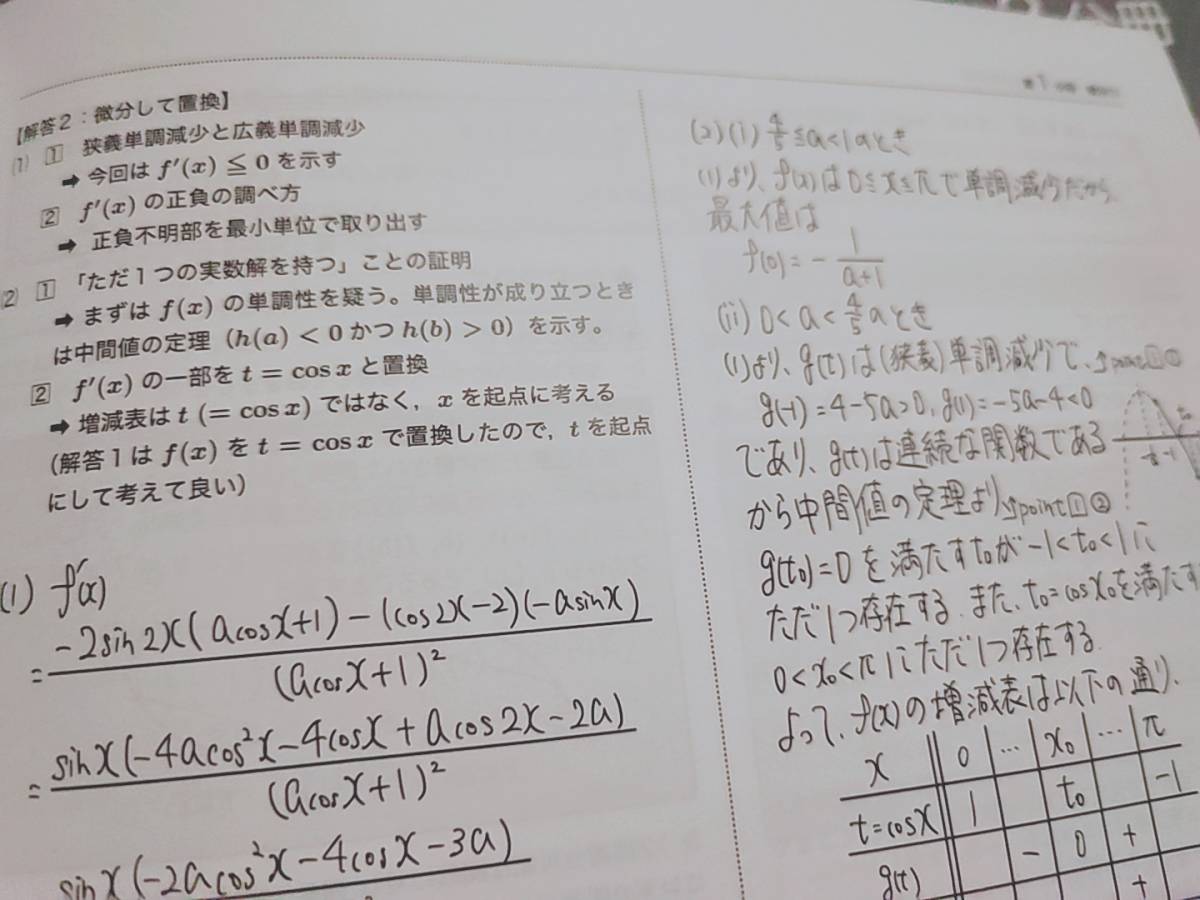 【解答2：微分して置換】
(1) 1 狭義単調減少と広義単調減少
➡ 今回は f'(x) ≦ 0 を示す
2 f'(x) の正負の調べ方
➡ 正負不明部を最小単位で取り出す
(2) 1 「ただ1つの実数解を持つ」ことの証明
➡ まずは f(x) の単調性を疑う。単調性が成り立つとき
は中間値の定理（h(a) < 0 かつ h(b) > 0）を示す。
2 f'(x) の一部を t = cos x と置換
➡ 増減表は t (= cos x) ではなく，x を起点に考える
(解答1は f(x) を t = cos x で置換したので，t を起点
にして考えて良い)
(1) f'(x)
= -2sin2x(acosx+1)-(cos2x-2)(-asinx) / (acosx+1)²
= sinx(-4acos²x-4cosx+acos2x-2a) / (acosx+1)²
sinx(-2acos²x-4cosx-3a)
(2)(i) 4/5 ≦ a < 1 のとき
(1)より、f(x)は 0≦x≦π で単調減少だから、
最大値は
f(0) = - 1/(a+1)
(ii) 0 < a < 4/5 のとき
(1)より、g(t)は(狭義)単調減少で、
g(-1) = 4-5a>0, g(1) = -5a-4<0
であり、g(t)は連続な関数である
から中間値の定理より point 1 ②
g(t₀)=0 を満たすt₀が -1<t₀<1に
ただ1つ存在する. また、t₀=cosx₀を満たす
0<x₀<πにただ1つ存在する.
よって、f(x)の増減表は以下の通り、
x 0 … x₀ … π
t=cosx 1 t₀ -1
g(t) - 0 +
+